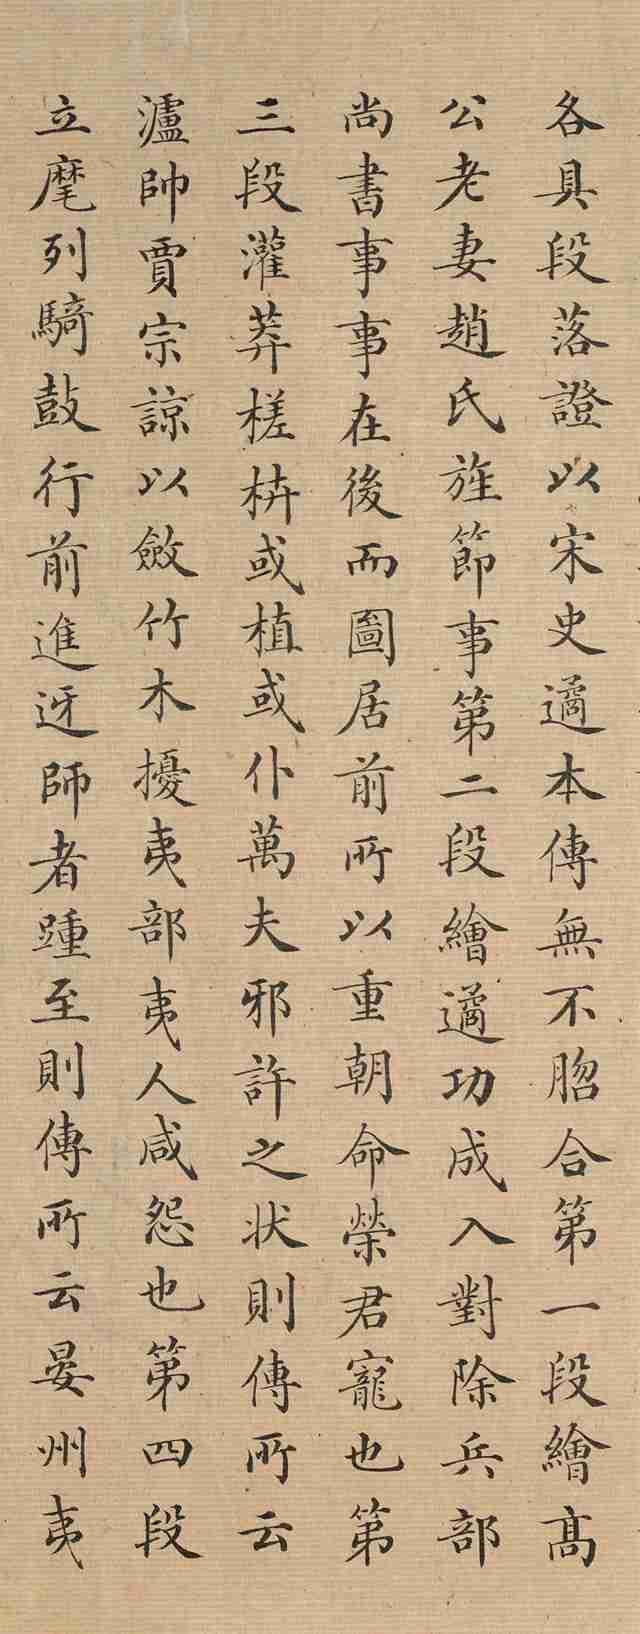 各具段落證以宋史遹本傳無不脗合第一段繪高
公老妻趙氏旌節事第二段繪遹功成入對除兵部
尚書事事在後而圖居前所以重朝命榮君寵也第
三段灌莽槎枿或植或仆萬夫邪許之狀則傳所云
瀘帥賈宗諒以斂竹木擾夷部夷人咸怨也第四段
立麾列騎鼓行前進迓師者踵至則傳所云晏州夷